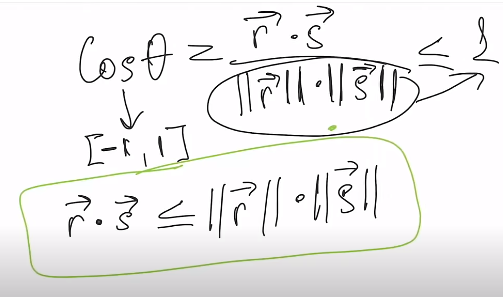 cos θ = (r⃗ · s⃗) / (||r⃗|| · ||s⃗||) ≤ 1
[-1, 1]
r⃗ · s⃗ ≤ ||r⃗|| · ||s⃗||